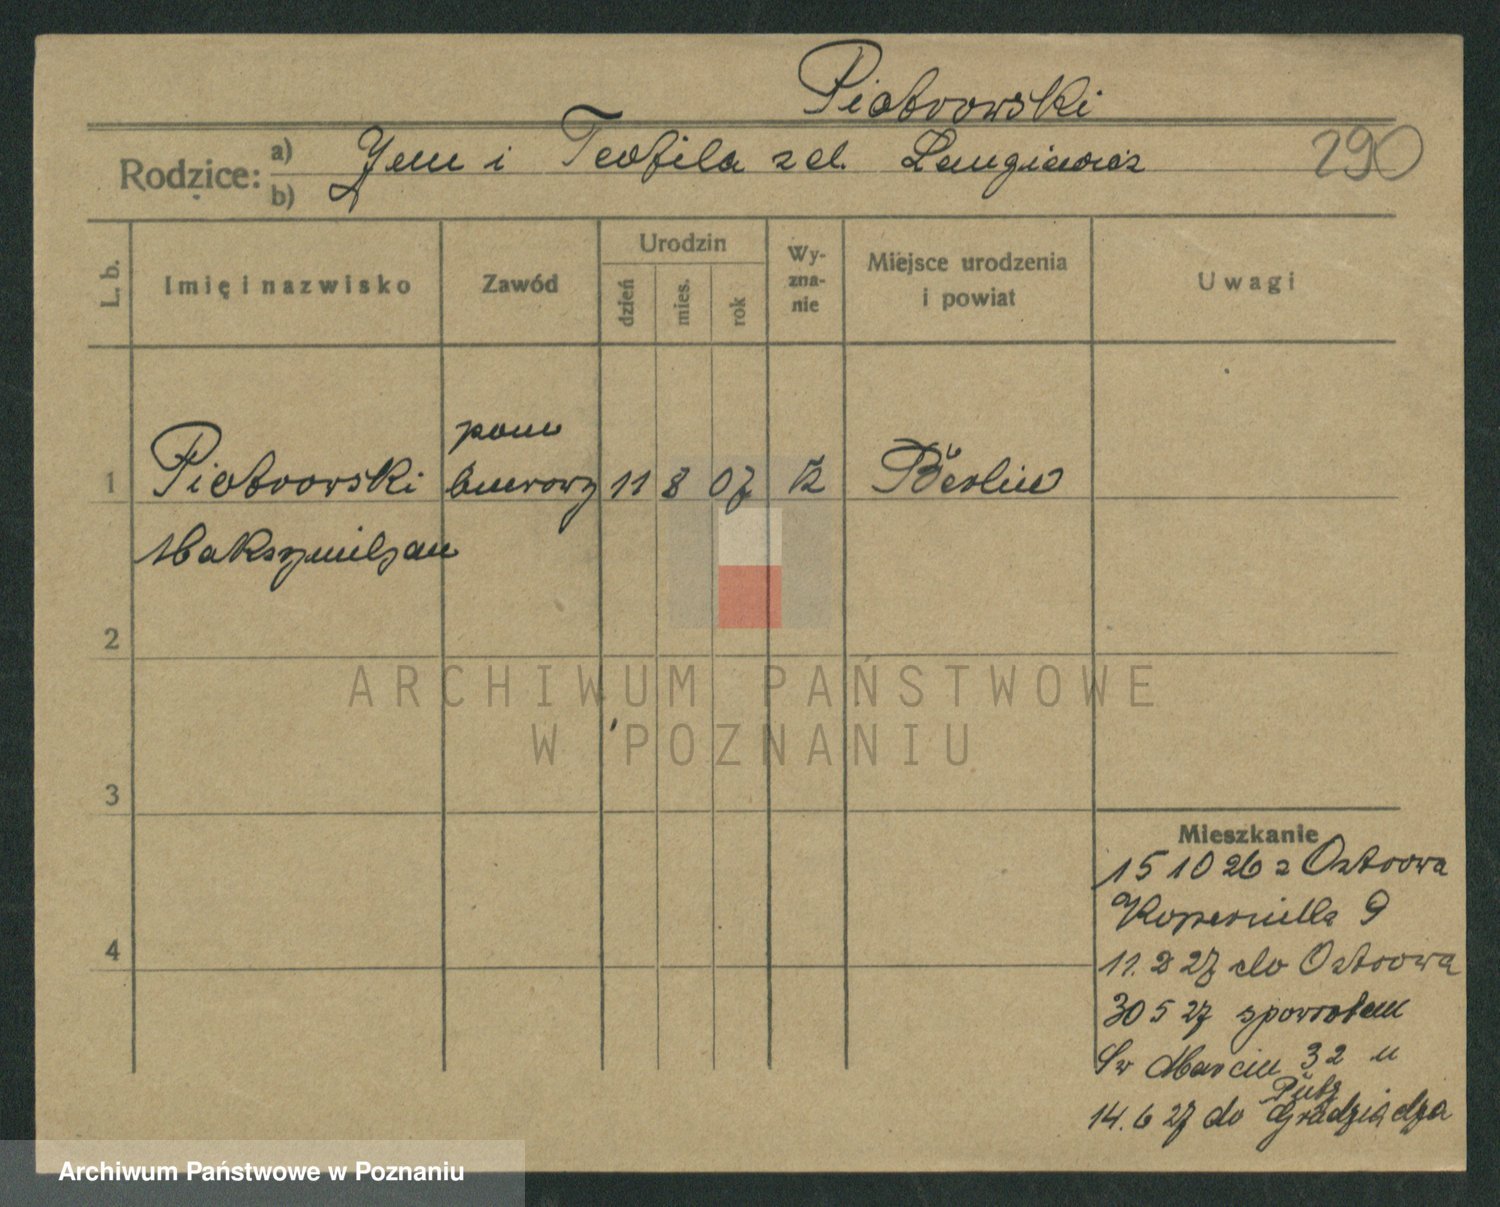 Piotrowski
290
Rodzice: a) b) Jan i Teofila z d. Langiewicz
L. b.
Imię i nazwisko
Zawód
Urodzin
dzień
mies.
rok
Wy-
zna-
nie
Miejsce urodzenia
i powiat
Uwagi
pom
1 Piotrowski biurowy 11 8 07 k Berlin
Maksymiljan
2
ARCHIWUM PAŃSTWOWE
W POZNANIU
3
Mieszkanie
15 10 26 z Ostrowa
Kopernika 9
4
11. 2 27 do Ostrowa
30 5 27 spowrotem
Św Marcin 32 u
14. 6 27 do Grudziądza
Archiwum Państwowe w Poznaniu